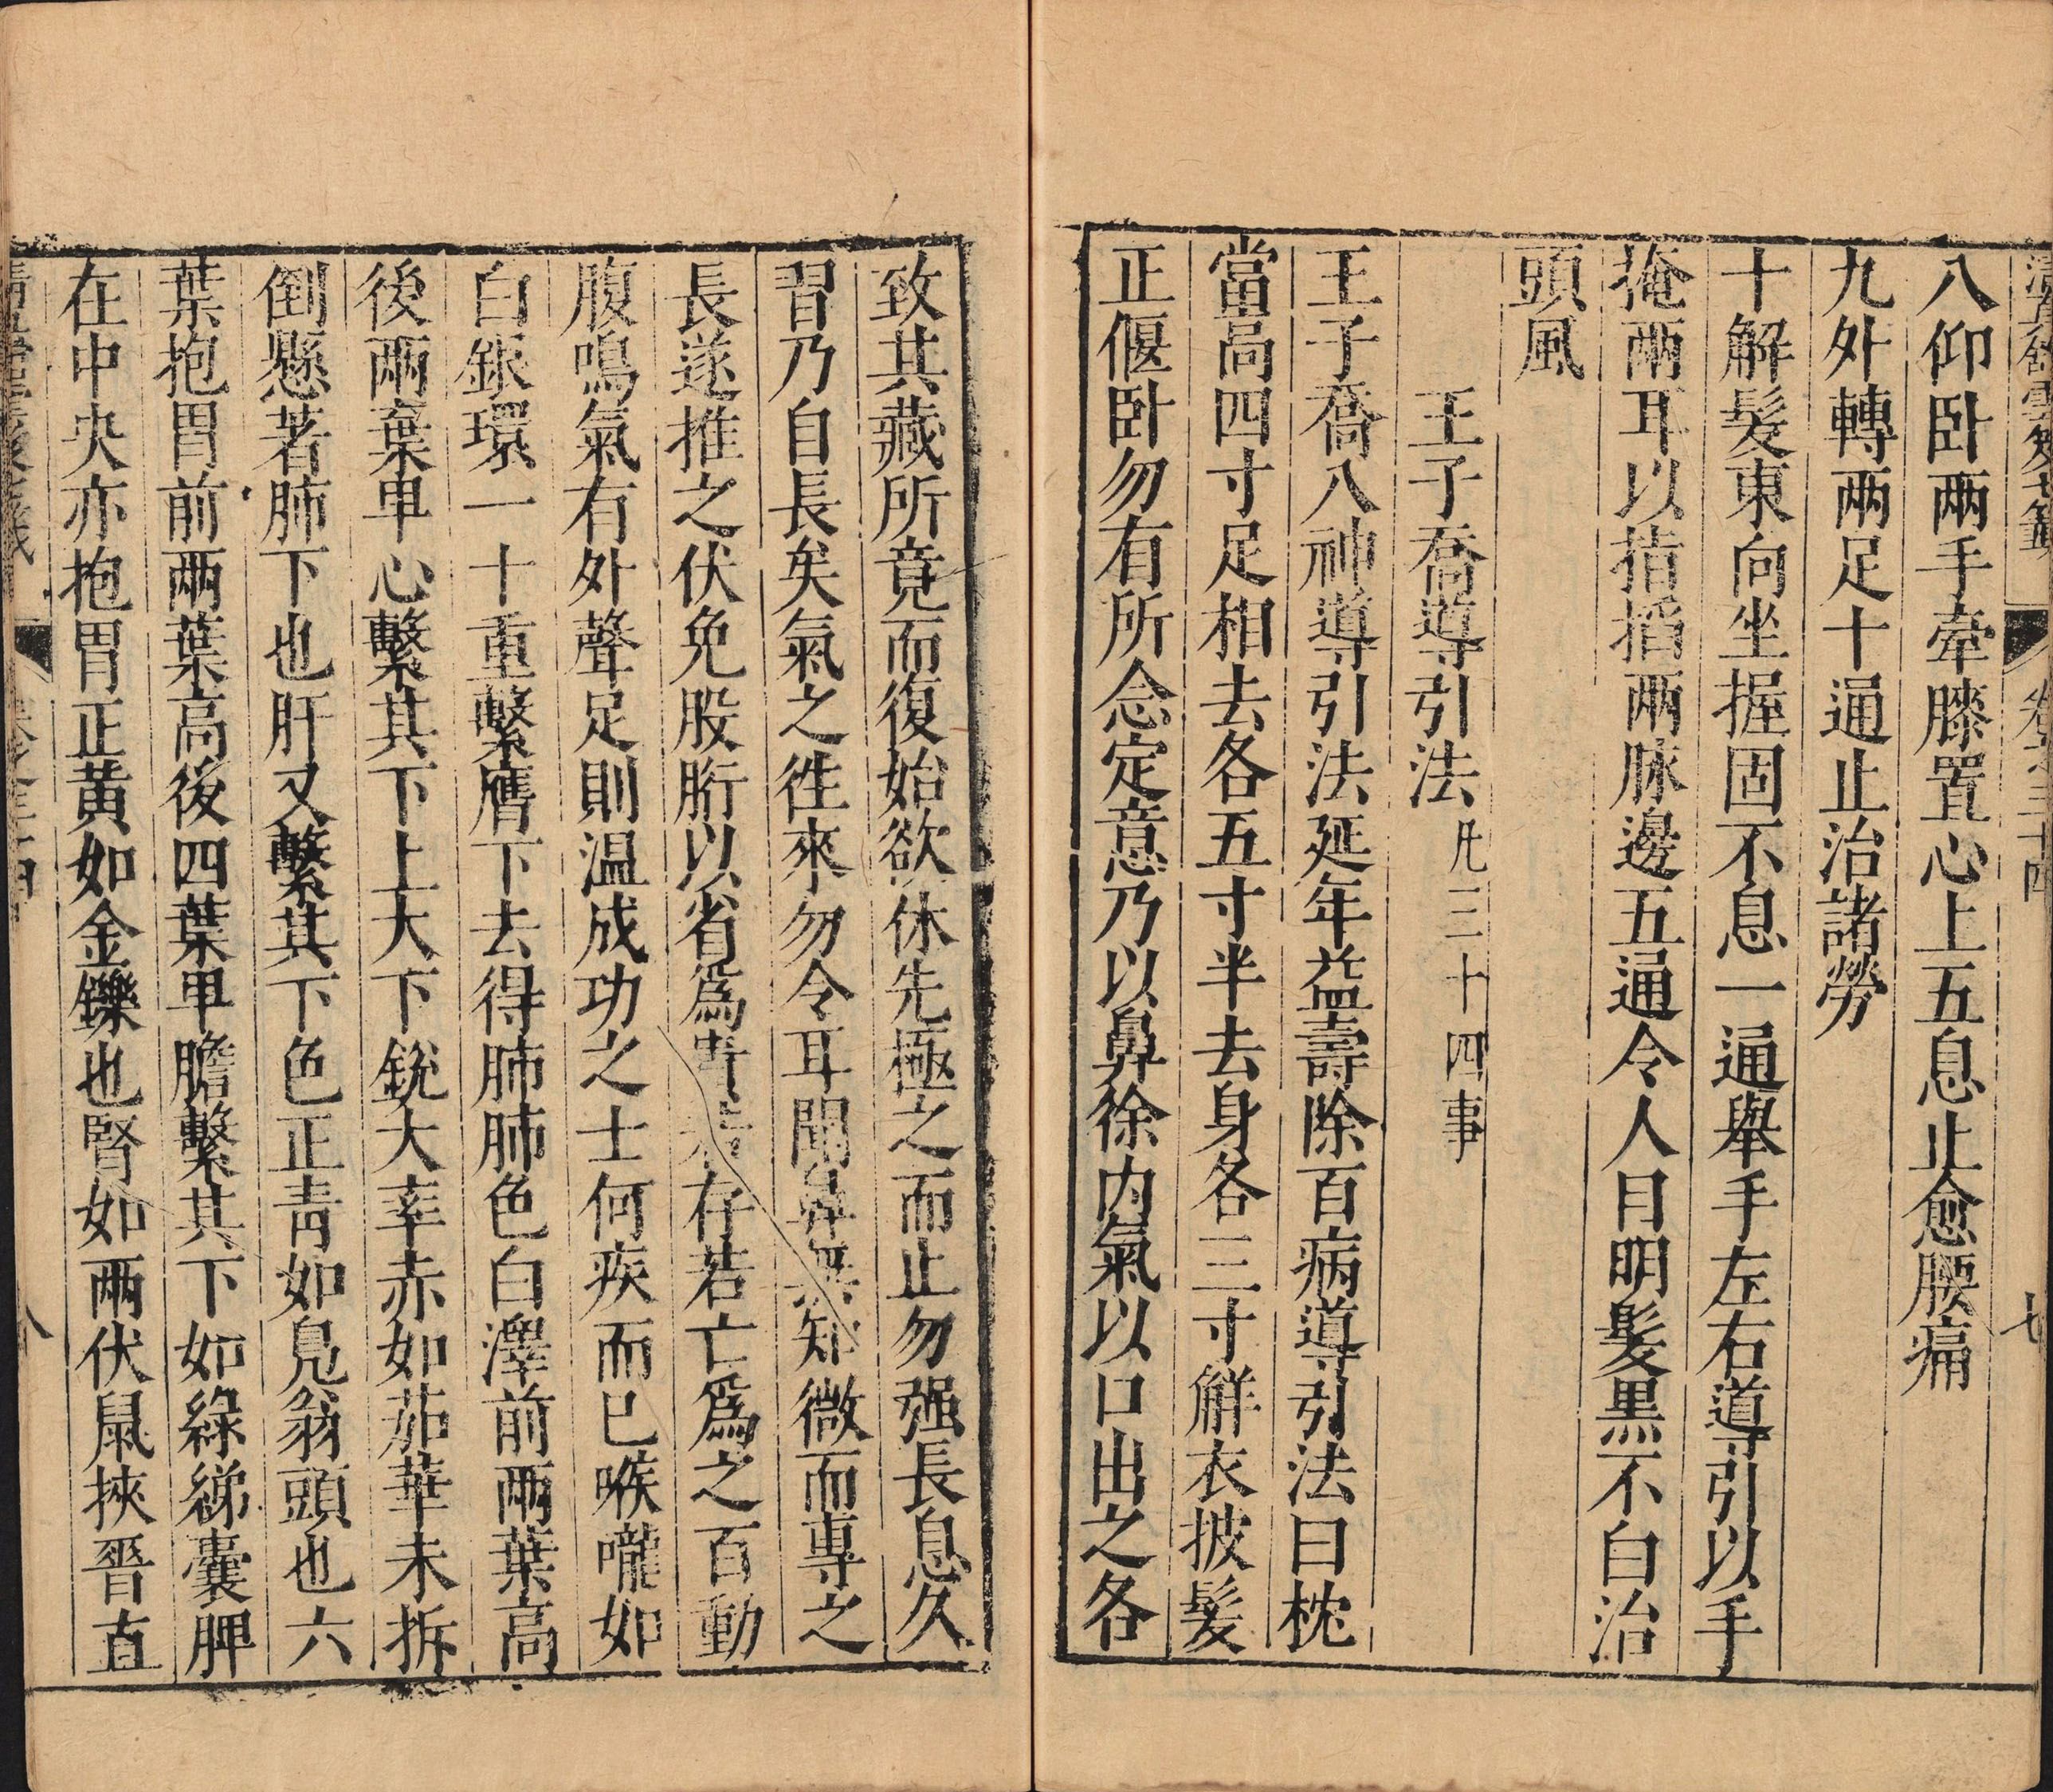 八仰卧兩手牽膝置心上五息止愈腰痛
九外轉兩足十通止治諸勞
十解髮東向坐握固不息一通舉手左右導引以手
掩兩耳以指掐兩脉邊五通令人目明髮黒不白治
頭風
王子喬導引法凡三十四事
王子喬八神導引法延年益壽除百病導引法曰枕
當高四寸足相去各五寸半去身各三寸觧衣披髮
正偃卧勿有所念定意乃以鼻徐内氣以口出之各
致其藏所竟而復始欲休先極之而止勿强長息久
習乃自長矣氣之徃來勿令耳聞鼻無知微而專之
長遂推之伏免股胻以省爲貴若存若亡爲之百動
腹鳴氣有外聲足則温成功之士何疾而已喉嚨如
白銀環一十重繫膺下去得肺肺色白澤前兩葉高
後兩葉卑心繫其下上大下銳大率赤如茄華未拆
倒懸著肺下也肝又繫其下色正青如鳬翁頭也六
葉抱胃前兩葉高後四葉卑膽繫其下如綠綈囊脾
在中央亦抱胃正黄如金鑠也腎如兩伏鼠挾晉直